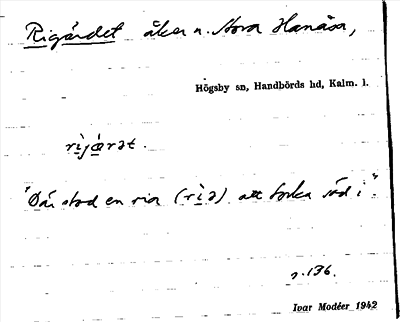 Rigärdet åker n. Stora Hanåsa,
Högsby sn, Handbörds hd, Kalm. l.
rìjæ̀rət.
"Där stod en ria (rìa) att torka säd i".
s. 136.
Ivar Modéer 1942